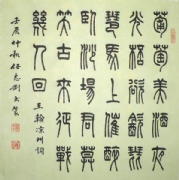 葡萄美酒夜
光杯欲飲琵
琶馬上催醉
臥沙場君莫
笑古來征戰
幾人回
王翰凉州詞
壬辰仲秋